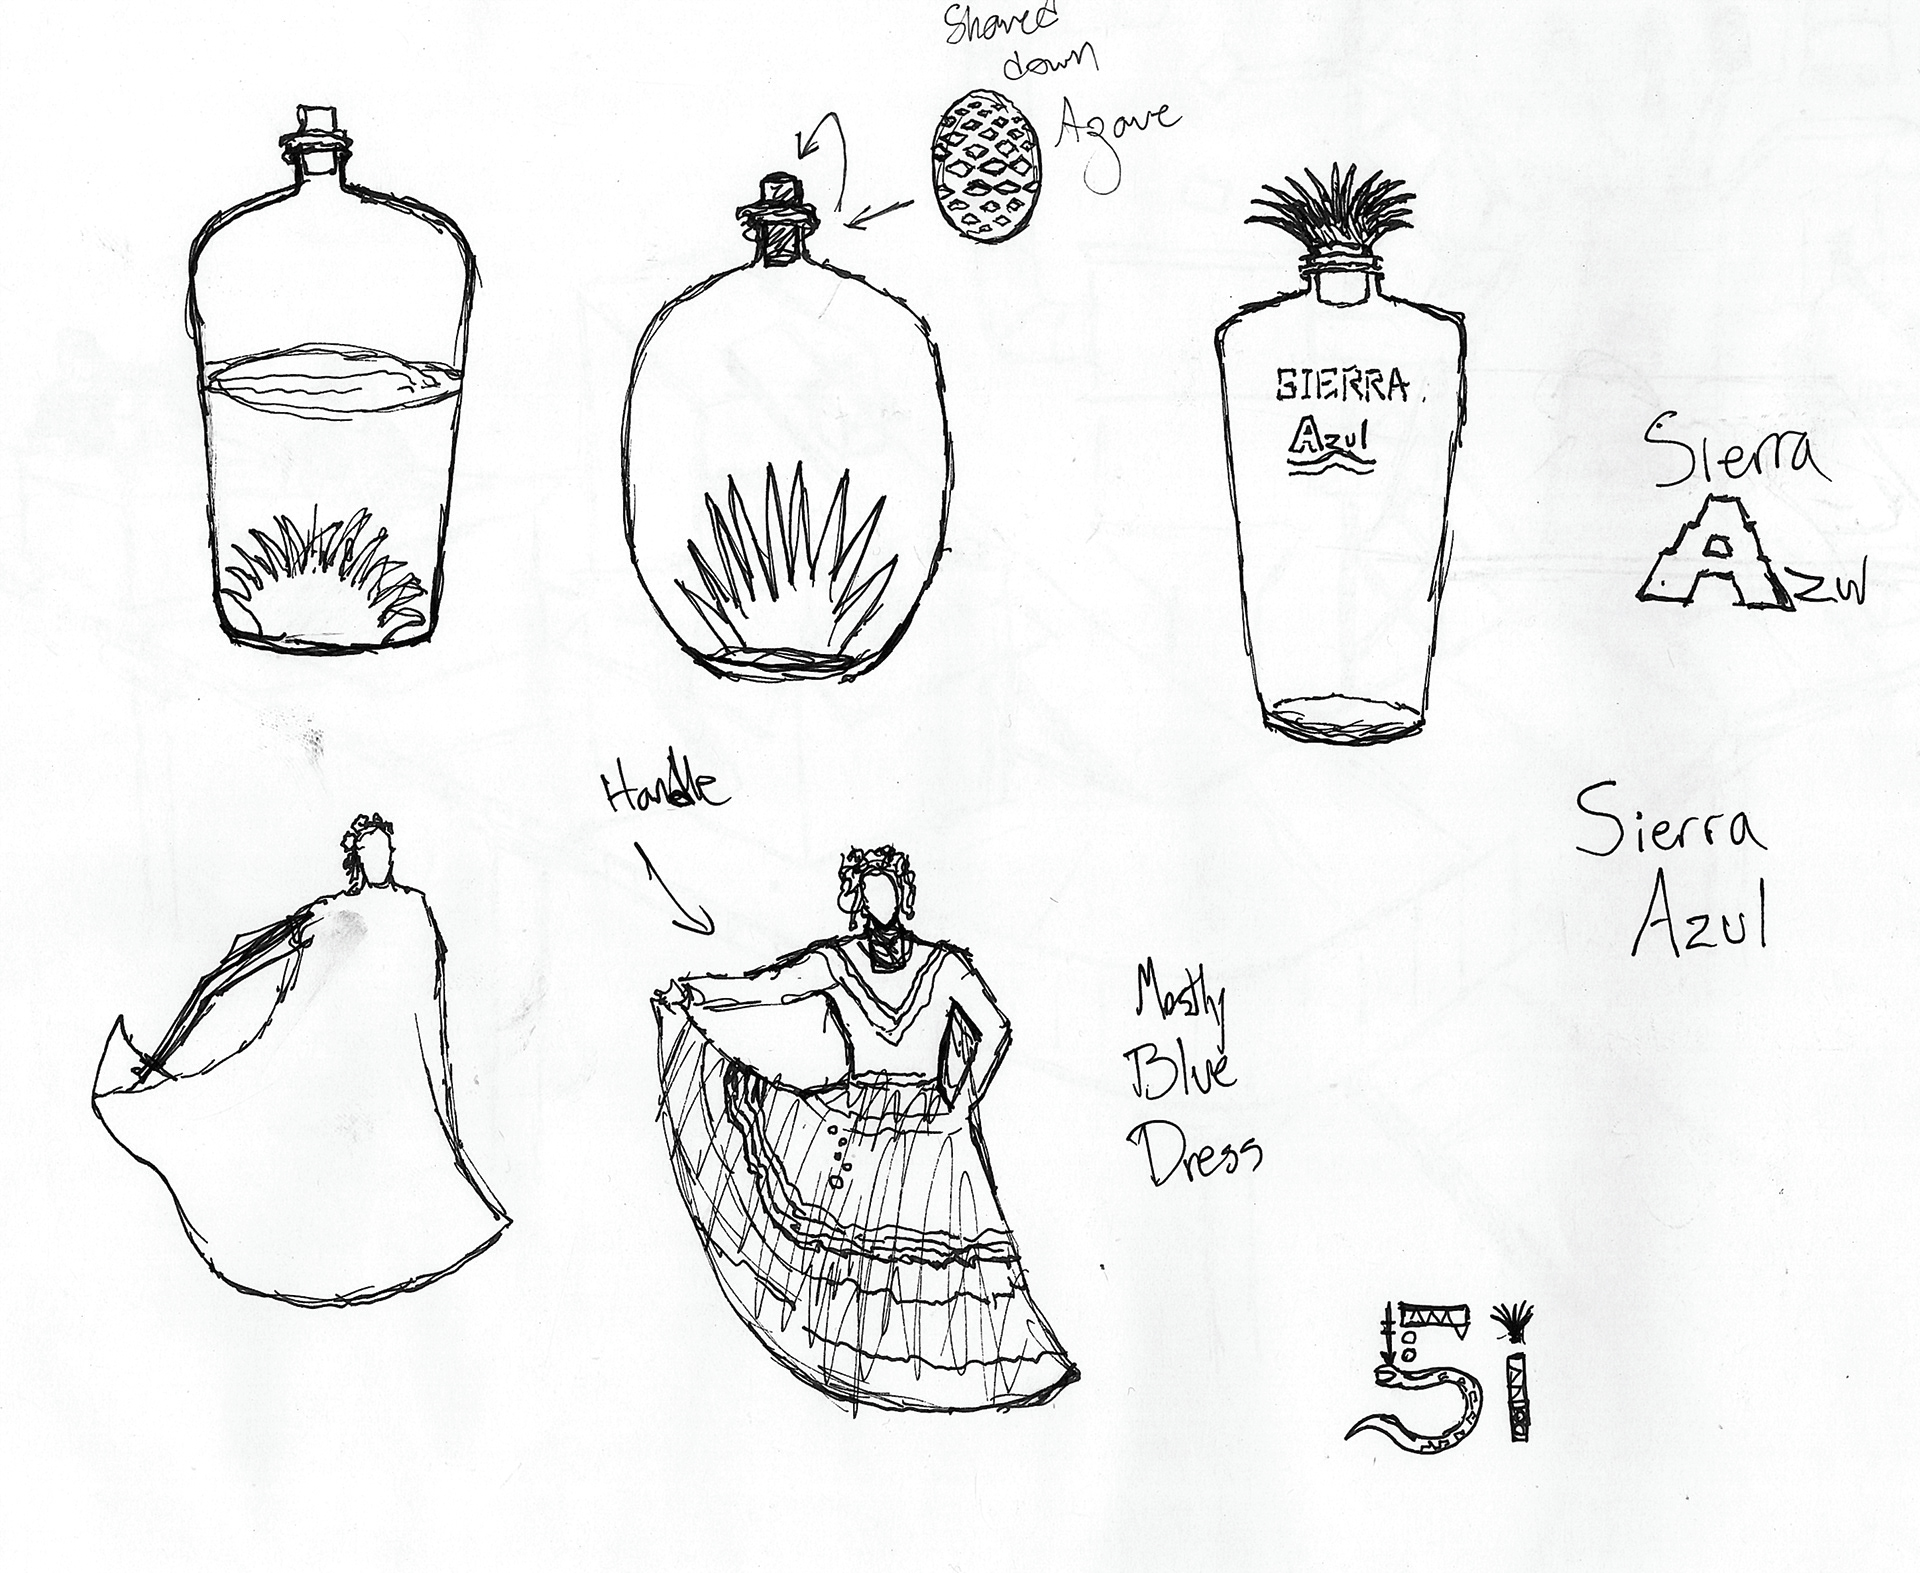 Shaved
down
Agave
SIERRA
Azul
Sierra
Azul
Handle
Sierra
Azul
Mostly
Blue
Dress
Si